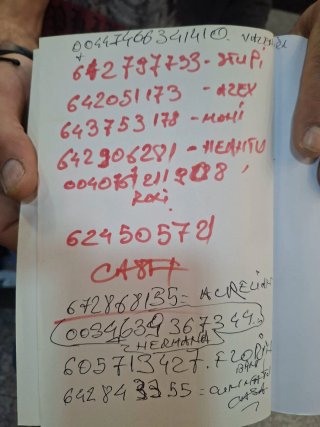 00447466341410.
642797793 - STUPI
642051173 - ALEX
643753178 - MOMI
642906281 - NEAMTU
0040767211908
ROXI
624505721
CASA
672868135 = AURELIAN
0034639367344
HERMANA
605713427. FLORIN
BAR
642843355 =
CASA